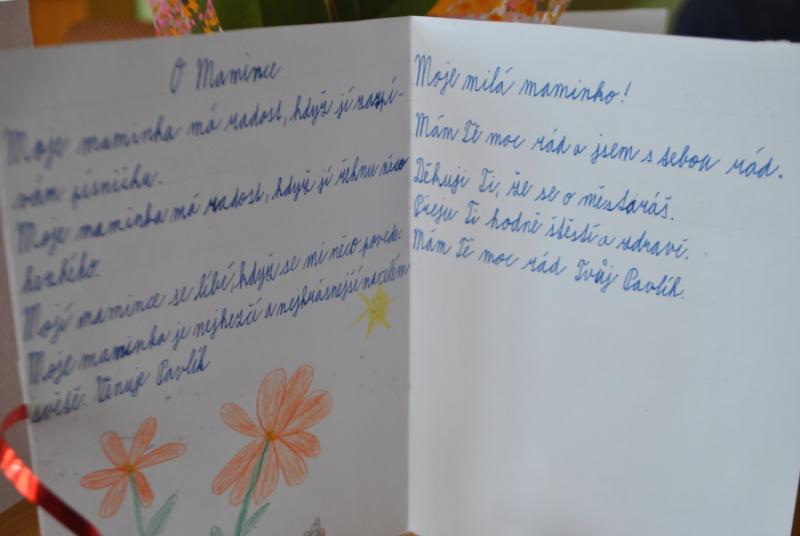 O Mamince
Moje maminka má radost, když jí zazpí-
vám písničku.
Moje maminka má radost, když jí řeknu něco
hezkého.
Mojí mamince se líbí, když se mi něco povede.
Moje maminka je nejhezčí a nejkrásnější na celém
světě. Věnuje Pavlík
Moje milá maminko!
Mám Tě moc rád a jsem s tebou rád.
Děkuji Ti, že se o mě staráš.
Přeju Ti hodně štěstí a zdraví.
Mám Tě moc rád Tvůj Pavlík.